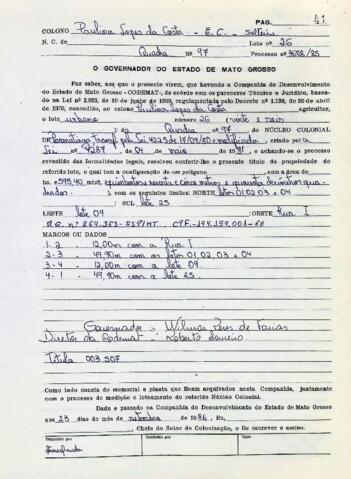 PAG. 41
COLONO Paulina Lopes da Costa - E.C. - Solteira
N. C. de Lote nº 26
Quadra nº 97 Processo nº 3608/85
O GOVERNADOR DO ESTADO DE MATO GROSSO
Faz saber, aos que o presente virem, que havendo a Companhia de Desenvolvimento
do Estado de Mato Grosso - CODEMAT-, de acôrdo com os pareceres Técnico e Jurídico, basea-
do na Lei nº 2.925, de 10 de junho de 1969, regulamentada pelo Decreto nº 1.138, de 20 de abril
de 1970, concedido, ao colono Paulina Lopes da Costa agricultor,
o lote urbano número 26 (vinte e seis)
da Quadra nº 97 DO NÚCLEO COLONIAL
de Lei 4225 de 17/09/80 criado pela
Lei nº 4287 de 04 de maio de 1981 e achando-se o processo
revestido das formalidades legais, resolveu conferir-lhe o presente título de propriedade do
referido lote, o qual tem a configuração de um polígono com a área de
595,40 mts2, quinhentos noventa e cinco metros e quarenta decímetros qua-
drados. ), com os seguintes limites: NORTE lotes 01,02,03 e 04
; SUL lote 25
LESTE lote 09 ; OESTE Rua I
MARCOS OU DADOS
1-2 - 12,00m com a Rua I
2-3 - 49,90m com os lotes 01,02,03 e 04
3-4 - 12,00m com o lote 09.
4-1 - 49,90m com o lote 25.
Governador - Wilmar Peres de Farias
Diretor da Codemat - Roberto
Título 003.507
Como tudo consta do memorial e planta que ficam arquivados nesta Companhia, juntamente
com o processo de medição e loteamento do referido Núcleo Colonial.
Dado e passado na Companhia de Desenvolvimento do Estado de Mato Grosso
aos 23 dias do mês de setembro de 1986, Eu,
, Chefe do Setor de Colonização, a fiz escrever e assino.